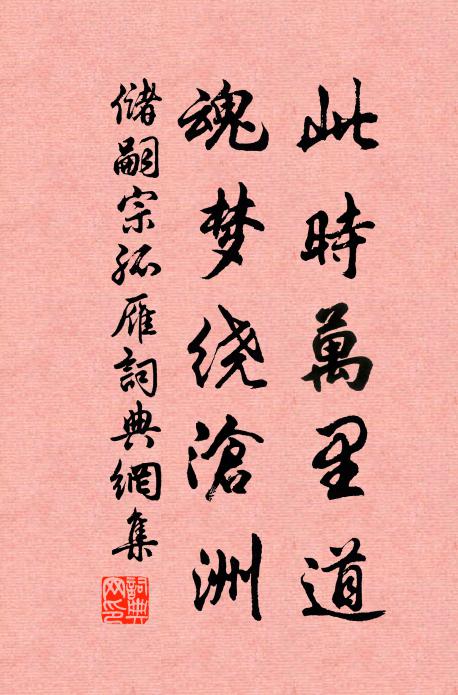 此時萬里道
魂梦绕滄洲
儲嗣宗孤雁詞典網集
詞典网印